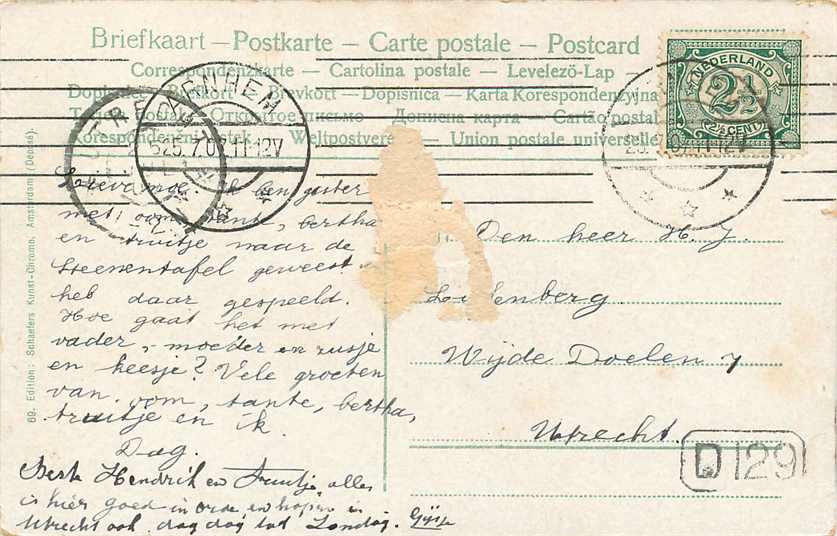 Briefkaart — Postkarte — Carte postale — Postcard
Correspondenzkarte — Cartolina postale — Levelező-Lap
Brevkort — Dopisnica — Karta Korespondencyjna
Открытое письмо — Дописна карта — Cartão postal
Weltpostverein — Union postale universelle
NEDERLAND
2½
2½ CENT
ARNHEM
25.7.0 11-12V
UTRECHT
25.7.07.11-12V
69. Edition: Schaefers Kunst-Chromo, Amsterdam! (Deponé).
Lieve moe, ik ben gister
met oom, tante, bertha
en truitje naar de
steenentafel geweest
heb daar gespeeld.
Hoe gaat het met
vader, moeder en zusje
en keesje? Vele groeten
van oom, tante, bertha,
truitje en ik.
Dag.
Beste Hendrik en Truitje alles
is hier goed in orde en hopen in
Utrecht ook, dag dag tot Zondag.
Den heer H. J.
Wijde Doelen 7
Utrecht.
D 129